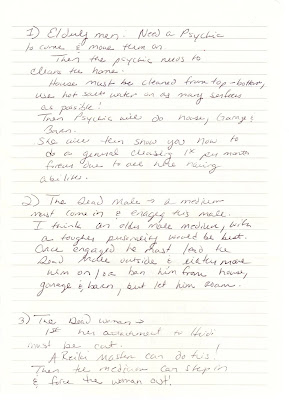 1) Elderly men. Need a Psychic
to come & move them on.
Then the psychic needs to
cleans the home.
House must be cleaned from top-bottom,
use hot salt water on as many surfaces
as possible!
Then Psychic will do house, Garage &
Barn.
She will then show you how to
do a general cleansing 1x per month
forever due to all have
abilities.
2) The Dead Male → a medium
must come in & engage this male.
I think an older male medium, with
a tougher personality would be best.
Once engaged he must lead the
Dead Male outside & either move
him on / or ban him from house,
garage & barn, but let him roam.
3) The Dead woman →
1st her attachment to Heidi
must be cut.
A Reiki Master can do this!
Then the medium can step in
& force the woman out!